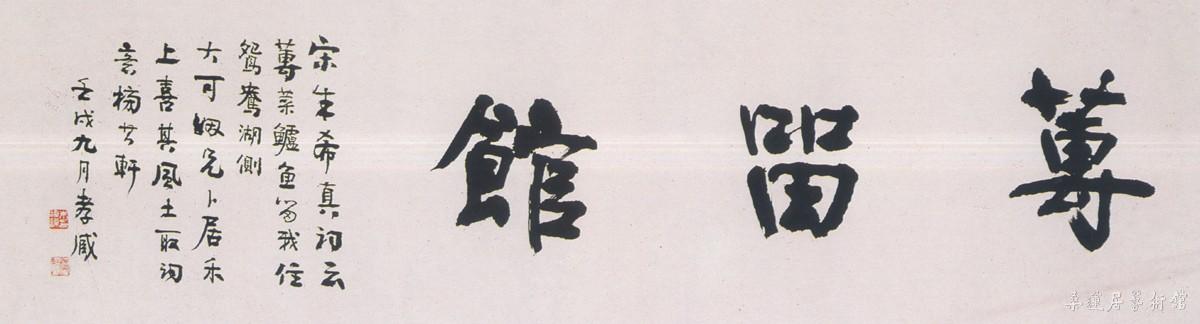 蓴留館
宋朱希真詞云
蓴菜鱸魚留我住
鴛鴦湖側
大可姻兄卜居禾
上喜其風土取詞
意榜其軒
壬戌九月孝臧
桑蓮居藝術館